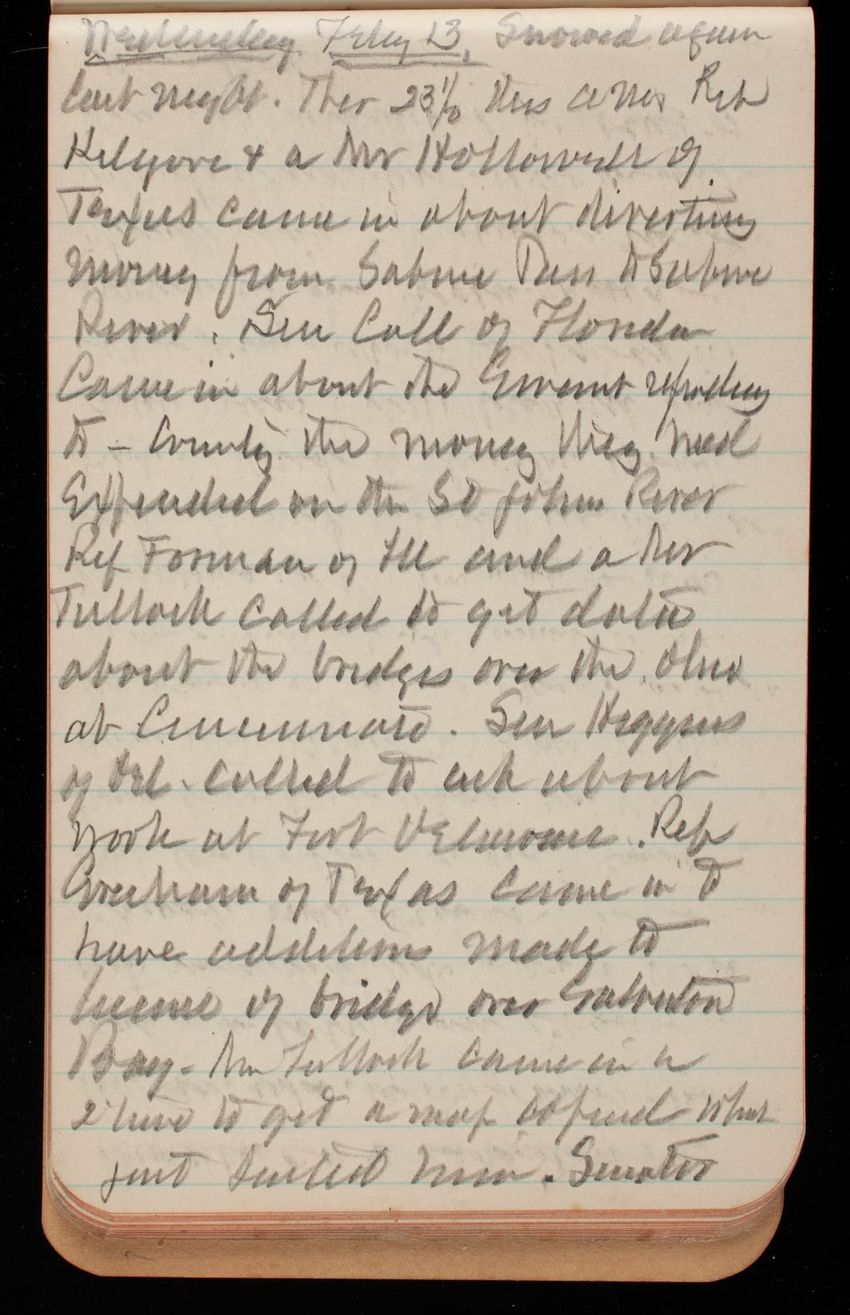 Wednesday Feby 13, Snowed again
last night. Ther 23½ this a.m. Rep
Kilgore & a Mr Hollowell of
Texas came in about diverting
money from Sabine Pass to Sabine
River. Sen Call of Florida
Came in about the Govermt refunding
to - County the money they had
Expended on the St Johns River
Rep Forman of Ill and a Mr
Tullock called to get data
about the bridges over the Ohio
at Cincinnati. Sen Higgins
of Del. called to ask about
work at Fort Delaware. Rep
Gresham of Texas came in to
have additions made to
license of bridge over Galveston
Bay. Mr Tullock came in a
2d time to get a map & found what
just suited him. Senator